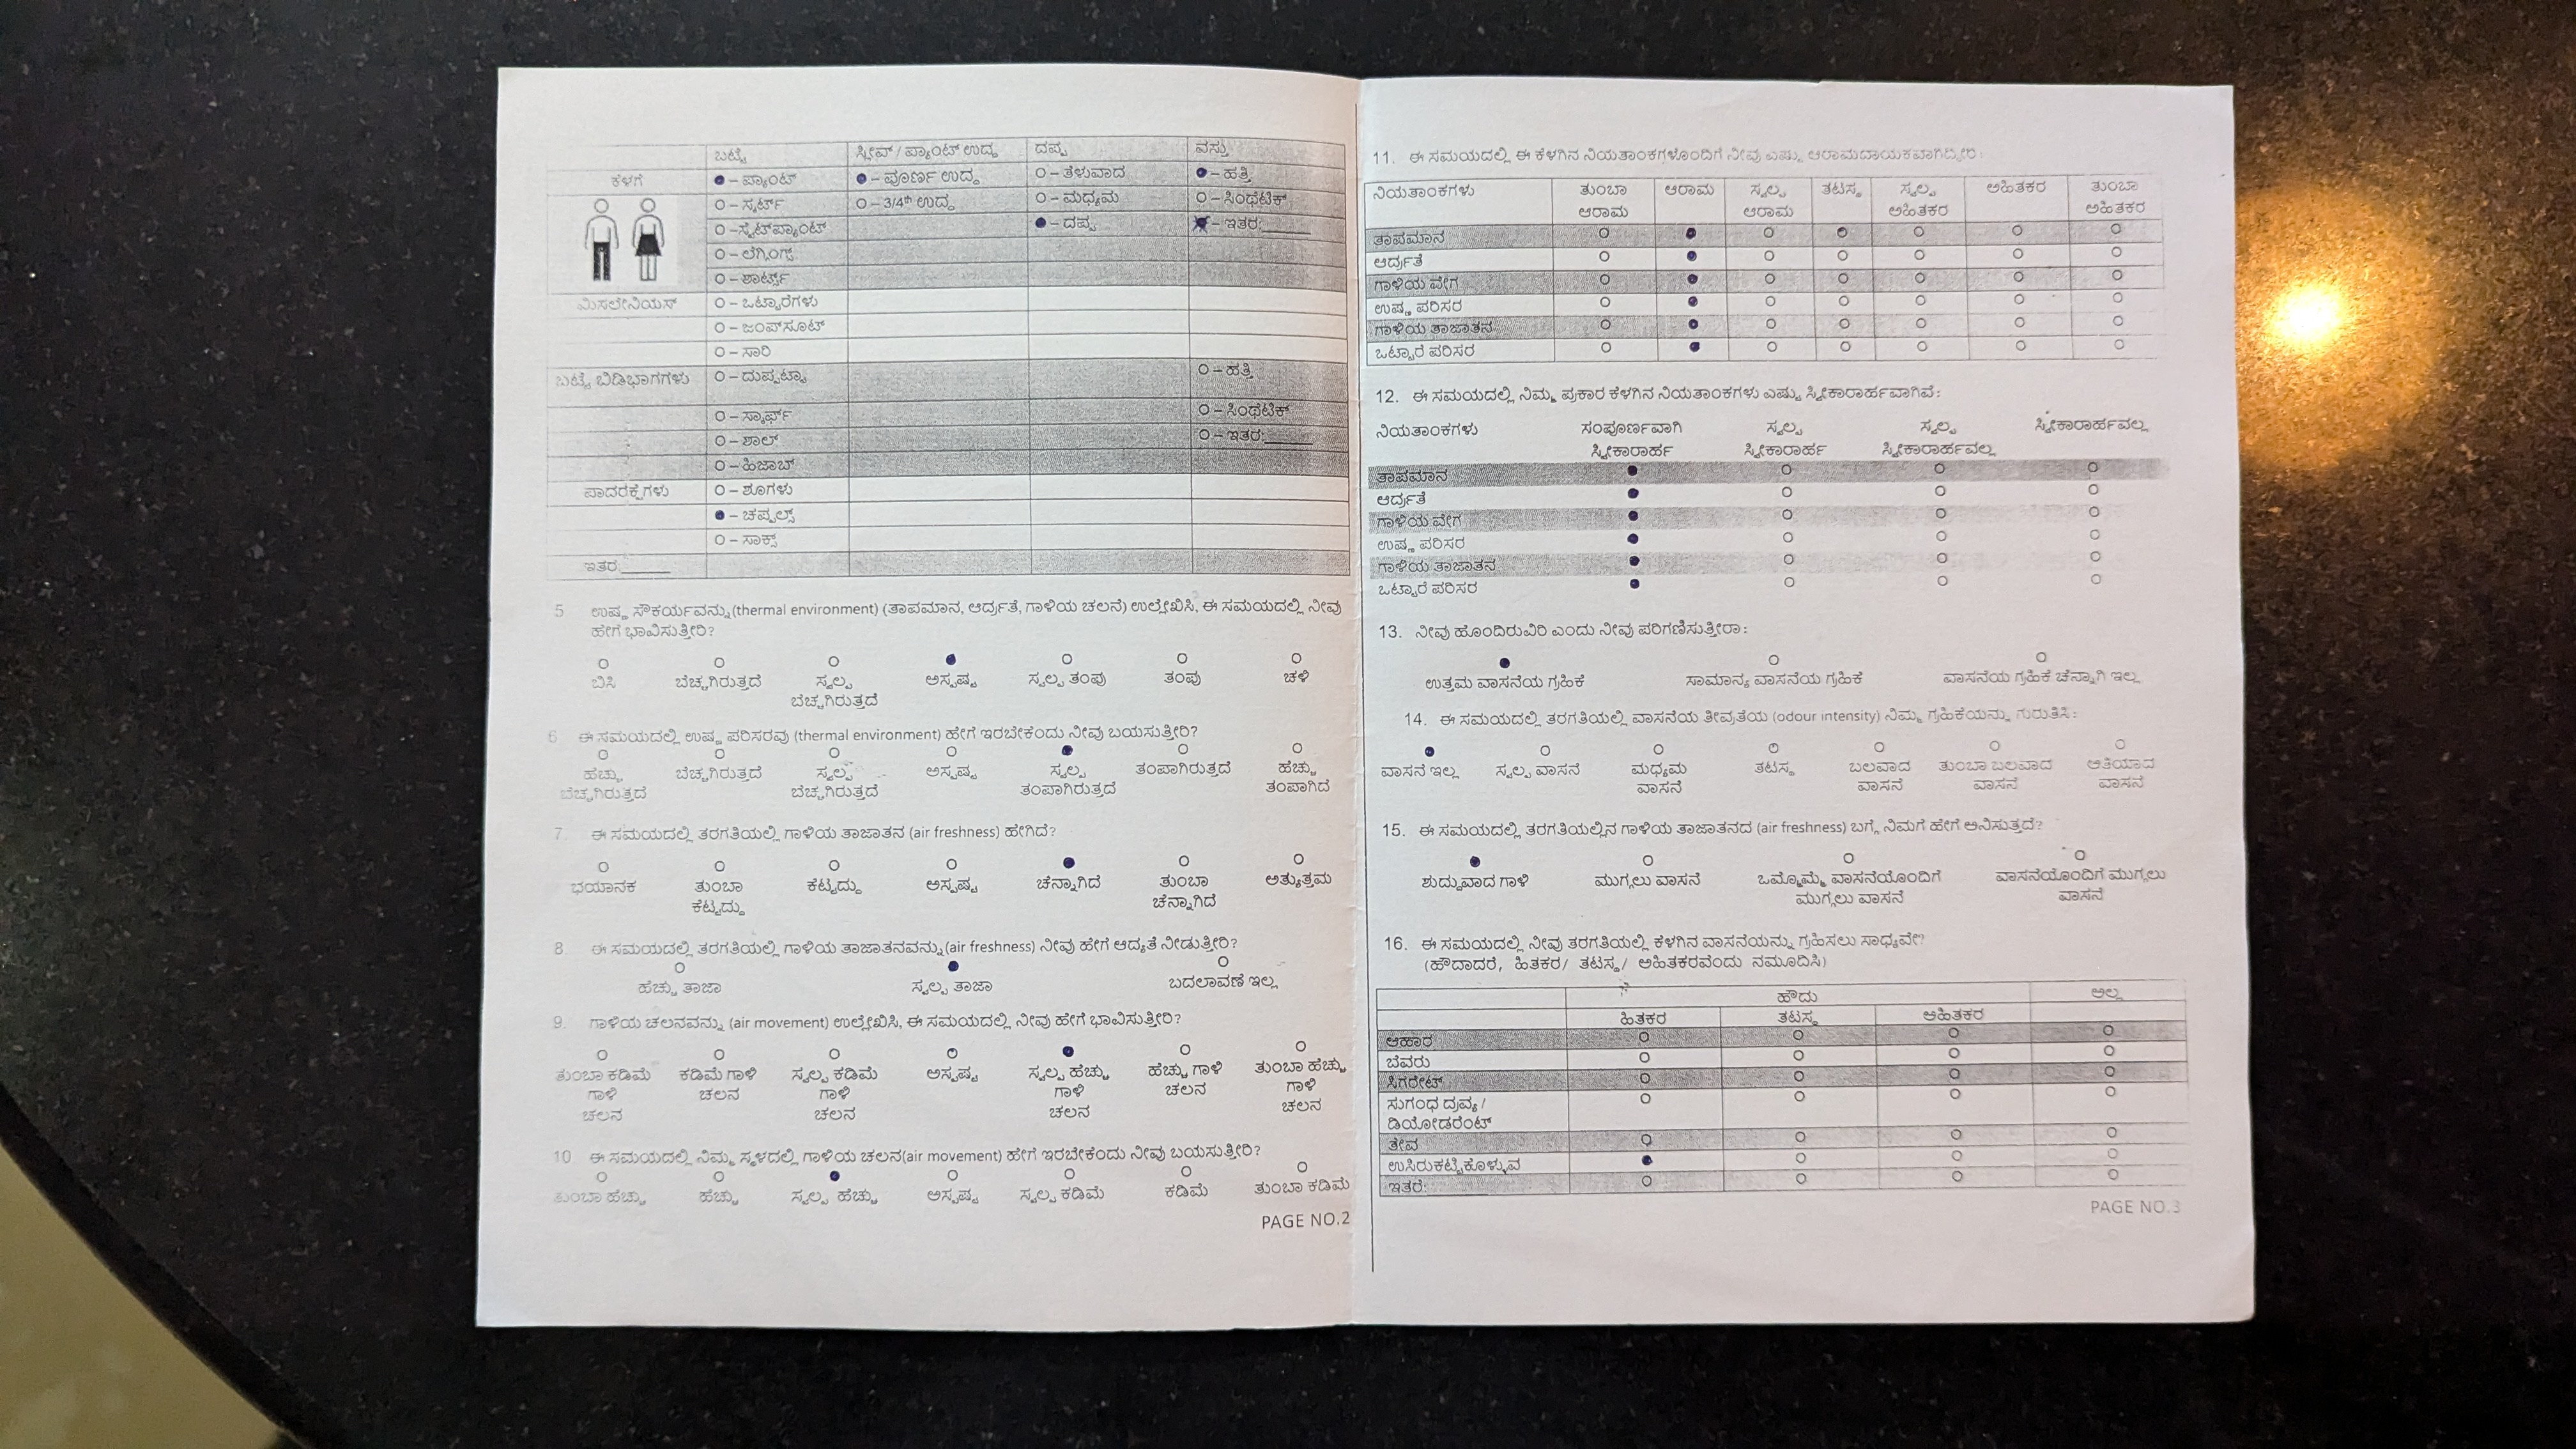 ಬಟ್ಟೆ ಸ್ಲೀವ್ / ಪ್ಯಾಂಟ್ ಉದ್ದ ದಪ್ಪ ವಸ್ತು
ಕೆಳಗೆ ● – ಪ್ಯಾಂಟ್ ● – ಪೂರ್ಣ ಉದ್ದ O – ತೆಳುವಾದ ● – ಹತ್ತಿ
O – ಸ್ಕರ್ಟ್ O – 3/4th ಉದ್ದ O – ಮಧ್ಯಮ O – ಸಿಂಥೆಟಿಕ್
O –ಸ್ವೆಟ್‌ಪ್ಯಾಂಟ್ ● – ದಪ್ಪ – ಇತರ:_____
O – ಲೆಗ್ಗಿಂಗ್ಸ್
O – ಶಾರ್ಟ್ಸ್
ಮಿಸಲೇನಿಯಸ್ O – ಒಟ್ಟಾರೆಗಳು
O – ಜಂಪ್‌ಸೂಟ್
O – ಸಾರಿ
ಬಟ್ಟೆ ಬಿಡಿಭಾಗಗಳು O – ದುಪ್ಪಟ್ಟಾ O – ಹತ್ತಿ
O – ಸ್ಕಾರ್ಫ್ O – ಸಿಂಥೆಟಿಕ್
O – ಶಾಲ್ O – ಇತರ:_____
O – ಹಿಜಾಬ್
ಪಾದರಕ್ಷೆಗಳು O – ಶೂಗಳು
● – ಚಪ್ಪಲ್ಸ್
O – ಸಾಕ್ಸ್
ಇತರ_____
5 ಉಷ್ಣ ಸೌಕರ್ಯವನ್ನು(thermal environment) (ತಾಪಮಾನ, ಆರ್ದ್ರತೆ, ಗಾಳಿಯ ಚಲನೆ) ಉಲ್ಲೇಖಿಸಿ, ಈ ಸಮಯದಲ್ಲಿ ನೀವು
ಹೇಗೆ ಭಾವಿಸುತ್ತೀರಿ?
ಬಿಸಿ ಬೆಚ್ಚಗಿರುತ್ತದೆ ಸ್ವಲ್ಪ ಅಸ್ಪಷ್ಟ ಸ್ವಲ್ಪ ತಂಪು ತಂಪು ಚಳಿ
ಬೆಚ್ಚಗಿರುತ್ತದೆ
6 ಈ ಸಮಯದಲ್ಲಿ ಉಷ್ಣ ಪರಿಸರವು (thermal environment) ಹೇಗೆ ಇರಬೇಕೆಂದು ನೀವು ಬಯಸುತ್ತೀರಿ?
ಹೆಚ್ಚು ಬೆಚ್ಚಗಿರುತ್ತದೆ ಸ್ವಲ್ಪ ಅಸ್ಪಷ್ಟ ಸ್ವಲ್ಪ ತಂಪಾಗಿರುತ್ತದೆ ಹೆಚ್ಚು
ಬೆಚ್ಚಗಿರುತ್ತದೆ ಬೆಚ್ಚಗಿರುತ್ತದೆ ತಂಪಾಗಿರುತ್ತದೆ ತಂಪಾಗಿದೆ
7. ಈ ಸಮಯದಲ್ಲಿ ತರಗತಿಯಲ್ಲಿ ಗಾಳಿಯ ತಾಜಾತನ (air freshness) ಹೇಗಿದೆ?
ಭಯಾನಕ ತುಂಬಾ ಕೆಟ್ಟದ್ದು ಅಸ್ಪಷ್ಟ ಚೆನ್ನಾಗಿದೆ ತುಂಬಾ ಅತ್ಯುತ್ತಮ
ಕೆಟ್ಟದ್ದು ಚೆನ್ನಾಗಿದೆ
8 ಈ ಸಮಯದಲ್ಲಿ ತರಗತಿಯಲ್ಲಿ ಗಾಳಿಯ ತಾಜಾತನವನ್ನು(air freshness) ನೀವು ಹೇಗೆ ಆದ್ಯತೆ ನೀಡುತ್ತೀರಿ?
ಹೆಚ್ಚು ತಾಜಾ ಸ್ವಲ್ಪ ತಾಜಾ ಬದಲಾವಣೆ ಇಲ್ಲ
9. ಗಾಳಿಯ ಚಲನವನ್ನು (air movement) ಉಲ್ಲೇಖಿಸಿ, ಈ ಸಮಯದಲ್ಲಿ ನೀವು ಹೇಗೆ ಭಾವಿಸುತ್ತೀರಿ?
ತುಂಬಾ ಕಡಿಮೆ ಕಡಿಮೆ ಗಾಳಿ ಸ್ವಲ್ಪ ಕಡಿಮೆ ಅಸ್ಪಷ್ಟ ಸ್ವಲ್ಪ ಹೆಚ್ಚು ಹೆಚ್ಚು ಗಾಳಿ ತುಂಬಾ ಹೆಚ್ಚು
ಗಾಳಿ ಚಲನ ಗಾಳಿ ಗಾಳಿ ಚಲನ ಗಾಳಿ
ಚಲನ ಚಲನ ಚಲನ ಚಲನ
10 ಈ ಸಮಯದಲ್ಲಿ ನಿಮ್ಮ ಸ್ಥಳದಲ್ಲಿ ಗಾಳಿಯ ಚಲನ(air movement) ಹೇಗೆ ಇರಬೇಕೆಂದು ನೀವು ಬಯಸುತ್ತೀರಿ?
ತುಂಬಾ ಹೆಚ್ಚು ಹೆಚ್ಚು ಸ್ವಲ್ಪ ಹೆಚ್ಚು ಅಸ್ಪಷ್ಟ ಸ್ವಲ್ಪ ಕಡಿಮೆ ಕಡಿಮೆ ತುಂಬಾ ಕಡಿಮೆ
PAGE NO.2
11. ಈ ಸಮಯದಲ್ಲಿ ಈ ಕೆಳಗಿನ ನಿಯತಾಂಕಗಳೊಂದಿಗೆ ನೀವು ಎಷ್ಟು ಆರಾಮದಾಯಕವಾಗಿದ್ದೀರಿ:
ನಿಯತಾಂಕಗಳು ತುಂಬಾ ಆರಾಮ ಸ್ವಲ್ಪ ತಟಸ್ಥ ಸ್ವಲ್ಪ ಅಹಿತಕರ ತುಂಬಾ
ಆರಾಮ ಆರಾಮ ಅಹಿತಕರ ಅಹಿತಕರ
ತಾಪಮಾನ
ಆರ್ದ್ರತೆ
ಗಾಳಿಯ ವೇಗ
ಉಷ್ಣ ಪರಿಸರ
ಗಾಳಿಯ ತಾಜಾತನ
ಒಟ್ಟಾರೆ ಪರಿಸರ
12. ಈ ಸಮಯದಲ್ಲಿ ನಿಮ್ಮ ಪ್ರಕಾರ ಕೆಳಗಿನ ನಿಯತಾಂಕಗಳು ಎಷ್ಟು ಸ್ವೀಕಾರಾರ್ಹವಾಗಿವೆ:
ನಿಯತಾಂಕಗಳು ಸಂಪೂರ್ಣವಾಗಿ ಸ್ವಲ್ಪ ಸ್ವಲ್ಪ ಸ್ವೀಕಾರಾರ್ಹವಲ್ಲ
ಸ್ವೀಕಾರಾರ್ಹ ಸ್ವೀಕಾರಾರ್ಹ ಸ್ವೀಕಾರಾರ್ಹವಲ್ಲ
ತಾಪಮಾನ
ಆರ್ದ್ರತೆ
ಗಾಳಿಯ ವೇಗ
ಉಷ್ಣ ಪರಿಸರ
ಗಾಳಿಯ ತಾಜಾತನ
ಒಟ್ಟಾರೆ ಪರಿಸರ
13. ನೀವು ಹೊಂದಿರುವಿರಿ ಎಂದು ನೀವು ಪರಿಗಣಿಸುತ್ತೀರಾ:
ಉತ್ತಮ ವಾಸನೆಯ ಗ್ರಹಿಕೆ ಸಾಮಾನ್ಯ ವಾಸನೆಯ ಗ್ರಹಿಕೆ ವಾಸನೆಯ ಗ್ರಹಿಕೆ ಚೆನ್ನಾಗಿ ಇಲ್ಲ
14. ಈ ಸಮಯದಲ್ಲಿ ತರಗತಿಯಲ್ಲಿ ವಾಸನೆಯ ತೀವ್ರತೆಯ (odour intensity) ನಿಮ್ಮ ಗ್ರಹಿಕೆಯನ್ನು ಗುರುತಿಸಿ:
ವಾಸನೆ ಇಲ್ಲ ಸ್ವಲ್ಪ ವಾಸನೆ ಮಧ್ಯಮ ತಟಸ್ಥ ಬಲವಾದ ತುಂಬಾ ಬಲವಾದ ಅತಿಯಾದ
ವಾಸನೆ ವಾಸನೆ ವಾಸನೆ ವಾಸನೆ
15. ಈ ಸಮಯದಲ್ಲಿ ತರಗತಿಯಲ್ಲಿನ ಗಾಳಿಯ ತಾಜಾತನದ (air freshness) ಬಗ್ಗೆ ನಿಮಗೆ ಹೇಗೆ ಅನಿಸುತ್ತದೆ?
ಶುದ್ಧವಾದ ಗಾಳಿ ಮುಗ್ಗಲು ವಾಸನೆ ಒಮ್ಮೊಮ್ಮೆ ವಾಸನೆಯೊಂದಿಗೆ ವಾಸನೆಯೊಂದಿಗೆ ಮುಗ್ಗಲು
ಮುಗ್ಗಲು ವಾಸನೆ ವಾಸನೆ
16. ಈ ಸಮಯದಲ್ಲಿ ನೀವು ತರಗತಿಯಲ್ಲಿ ಕೆಳಗಿನ ವಾಸನೆಯನ್ನು ಗ್ರಹಿಸಲು ಸಾಧ್ಯವೇ?
(ಹೌದಾದರೆ, ಹಿತಕರ/ ತಟಸ್ಥ/ ಅಹಿತಕರವೆಂದು ನಮೂದಿಸಿ)
ಹೌದು ಅಲ್ಲ
ಹಿತಕರ ತಟಸ್ಥ ಅಹಿತಕರ
ಆಹಾರ
ಬೆವರು
ಸಿಗರೇಟ್
ಸುಗಂಧ ದ್ರವ್ಯ /
ಡಿಯೋಡರೆಂಟ್
ತೇವ
ಉಸಿರುಕಟ್ಟಿಕೊಳ್ಳುವ
ಇತರೆ:
PAGE NO.3